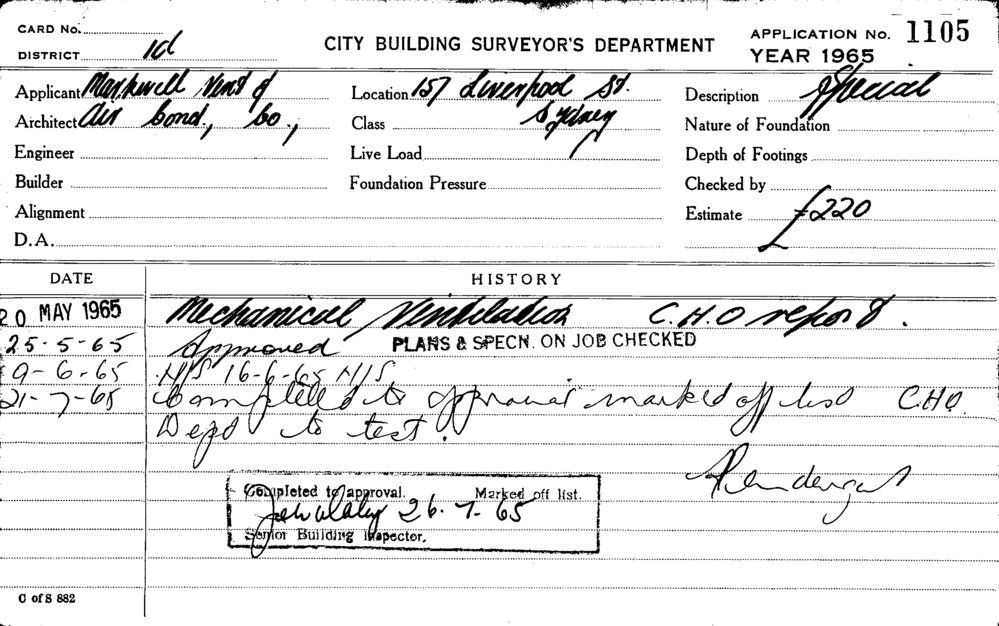 CARD No.
DISTRICT 1d
CITY BUILDING SURVEYOR'S DEPARTMENT
APPLICATION No. 1105
YEAR 1965
Applicant Markwell Vent &
Architect Air Cond., Co.,
Engineer
Builder
Alignment
D.A.
Location 157 Liverpool St.
Class Sydney
Live Load
Foundation Pressure
Description Special
Nature of Foundation
Depth of Footings
Checked by
Estimate £220
DATE HISTORY
20 MAY 1965 Mechanical Ventilation C.H.O report.
25-5-65 Approved PLANS & SPECN. ON JOB CHECKED
9-6-65 N/S 16-6-65 N/S
21-7-65 Completed to approval marked off list C.H.O.
Dept to test.
Completed to approval. Marked off list.
26-7-65
Senior Building Inspector.
C of S 882